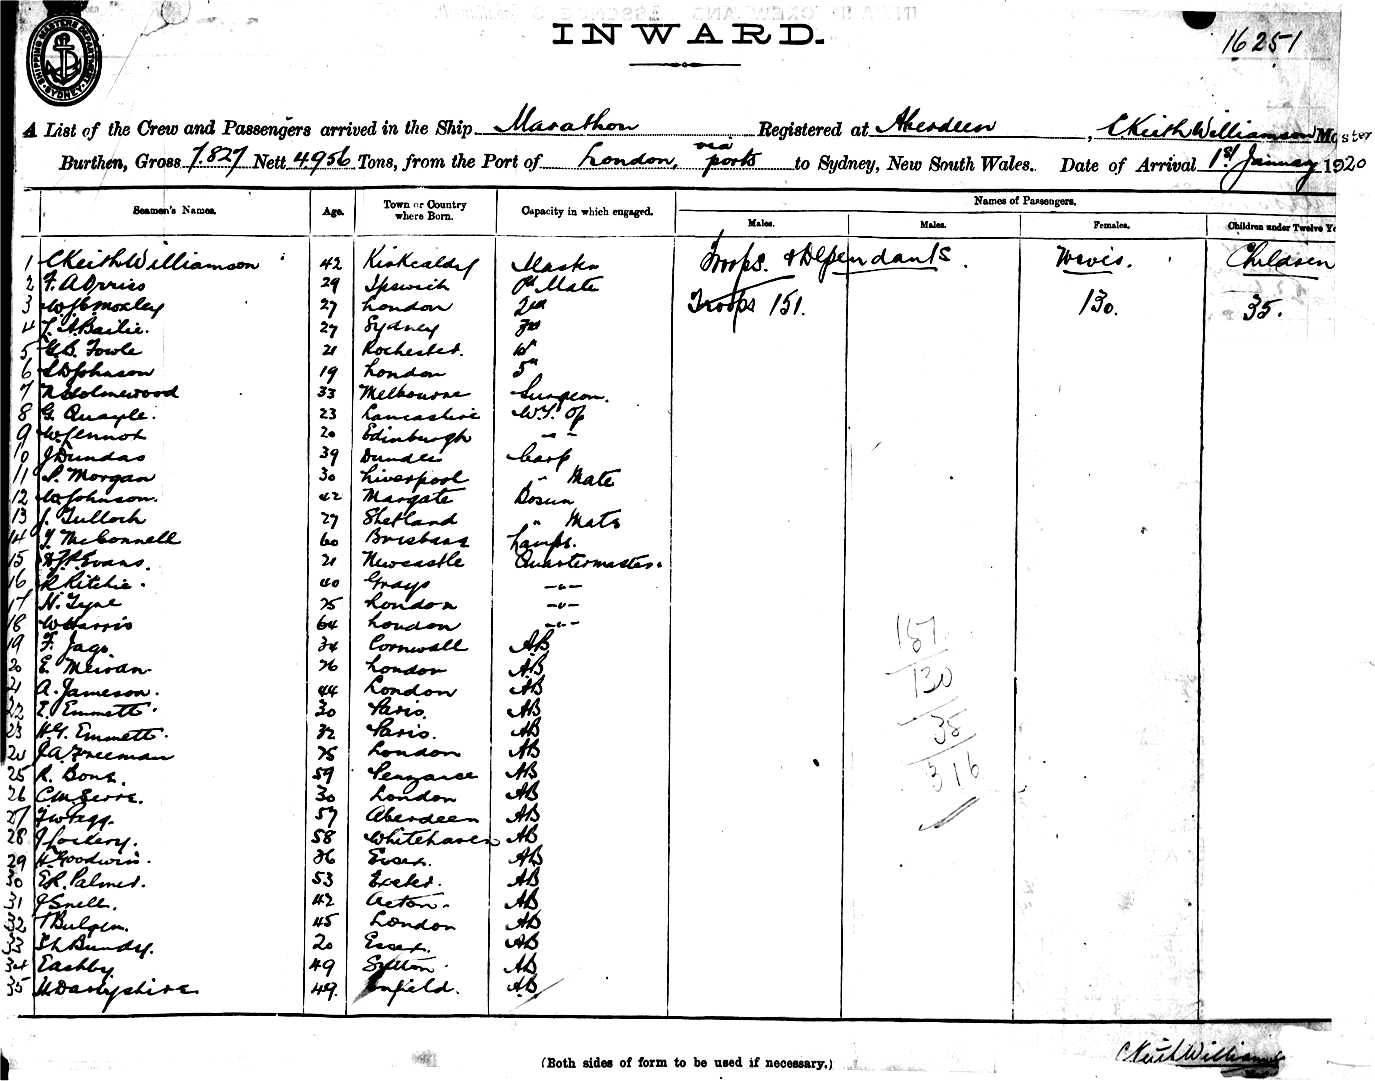 INWARD.
16251
SHIPPING MASTERS DEPARTMENT SYDNEY
A List of the Crew and Passengers arrived in the Ship Marathon Registered at Aberdeen, C Keith Williamson Master
Burthen, Gross 7.827 Nett 4956 Tons, from the Port of London, via ports to Sydney, New South Wales. Date of Arrival 1st January 1920
Seamen's Names. Age. Town or Country where Born. Capacity in which engaged. Names of Passengers.
Males. Males. Females. Children under Twelve Ye
1 C Keith Williamson 42 Kirkcaldy Master Troops. & Dependants. Wives. Children
2 29 Ipswich Mate
3 27 London 2nd Troops 151. 130. 35.
4 27 Sydney 3rd
5 Fowle 21 Rochester.
6 Johnson 19 London 5th
7 Holmewood 33 Melbourne Surgeon.
8 G. Quayle. 23 Lancashire W.T. Op
9 W Lennox 20 Edinburgh - " -
10 J Dundas 39 Dundee Carp
11 Morgan 30 Liverpool " Mate
12 W Johnson. 42 Margate Bosun
13 J. Tulloch 27 Shetland " Mate
14 McConnell 60 Brisbane Lamps.
15 Evans. 21 Newcastle Quartermaster.
16 R Ritchie. 40 Grays - " -
17 H. Tyne 25 London - " -
18 W Harris 64 London - " -
19 F. Jago. 34 Cornwall AB
20 E. 26 London AB
21 A. Jameson. 44 London AB
22 E. Emmett. 30 Paris. AB
23 H.G. Emmett. 32 Paris. AB
24 J.A. Freeman 25 London AB
25 R. Bone. 59 Penzance AB
26 30 London AB
27 57 Aberdeen AB
28 J Lockery. 58 Whitehaven AB
29 H Goodwin. 26 Essex. AB
30 E.R. Palmer. 53 Exeter. AB
31 J Snell. 42 Acton. AB
32 T Bulgen. 45 London AB
33 Bundy. 20 Essex. AB
34 Eashby 49 Sutton AB
35 H Darbyshire 49. Enfield. AB
151
130
35
316
(Both sides of form to be used if necessary.)
C Keith Williamson